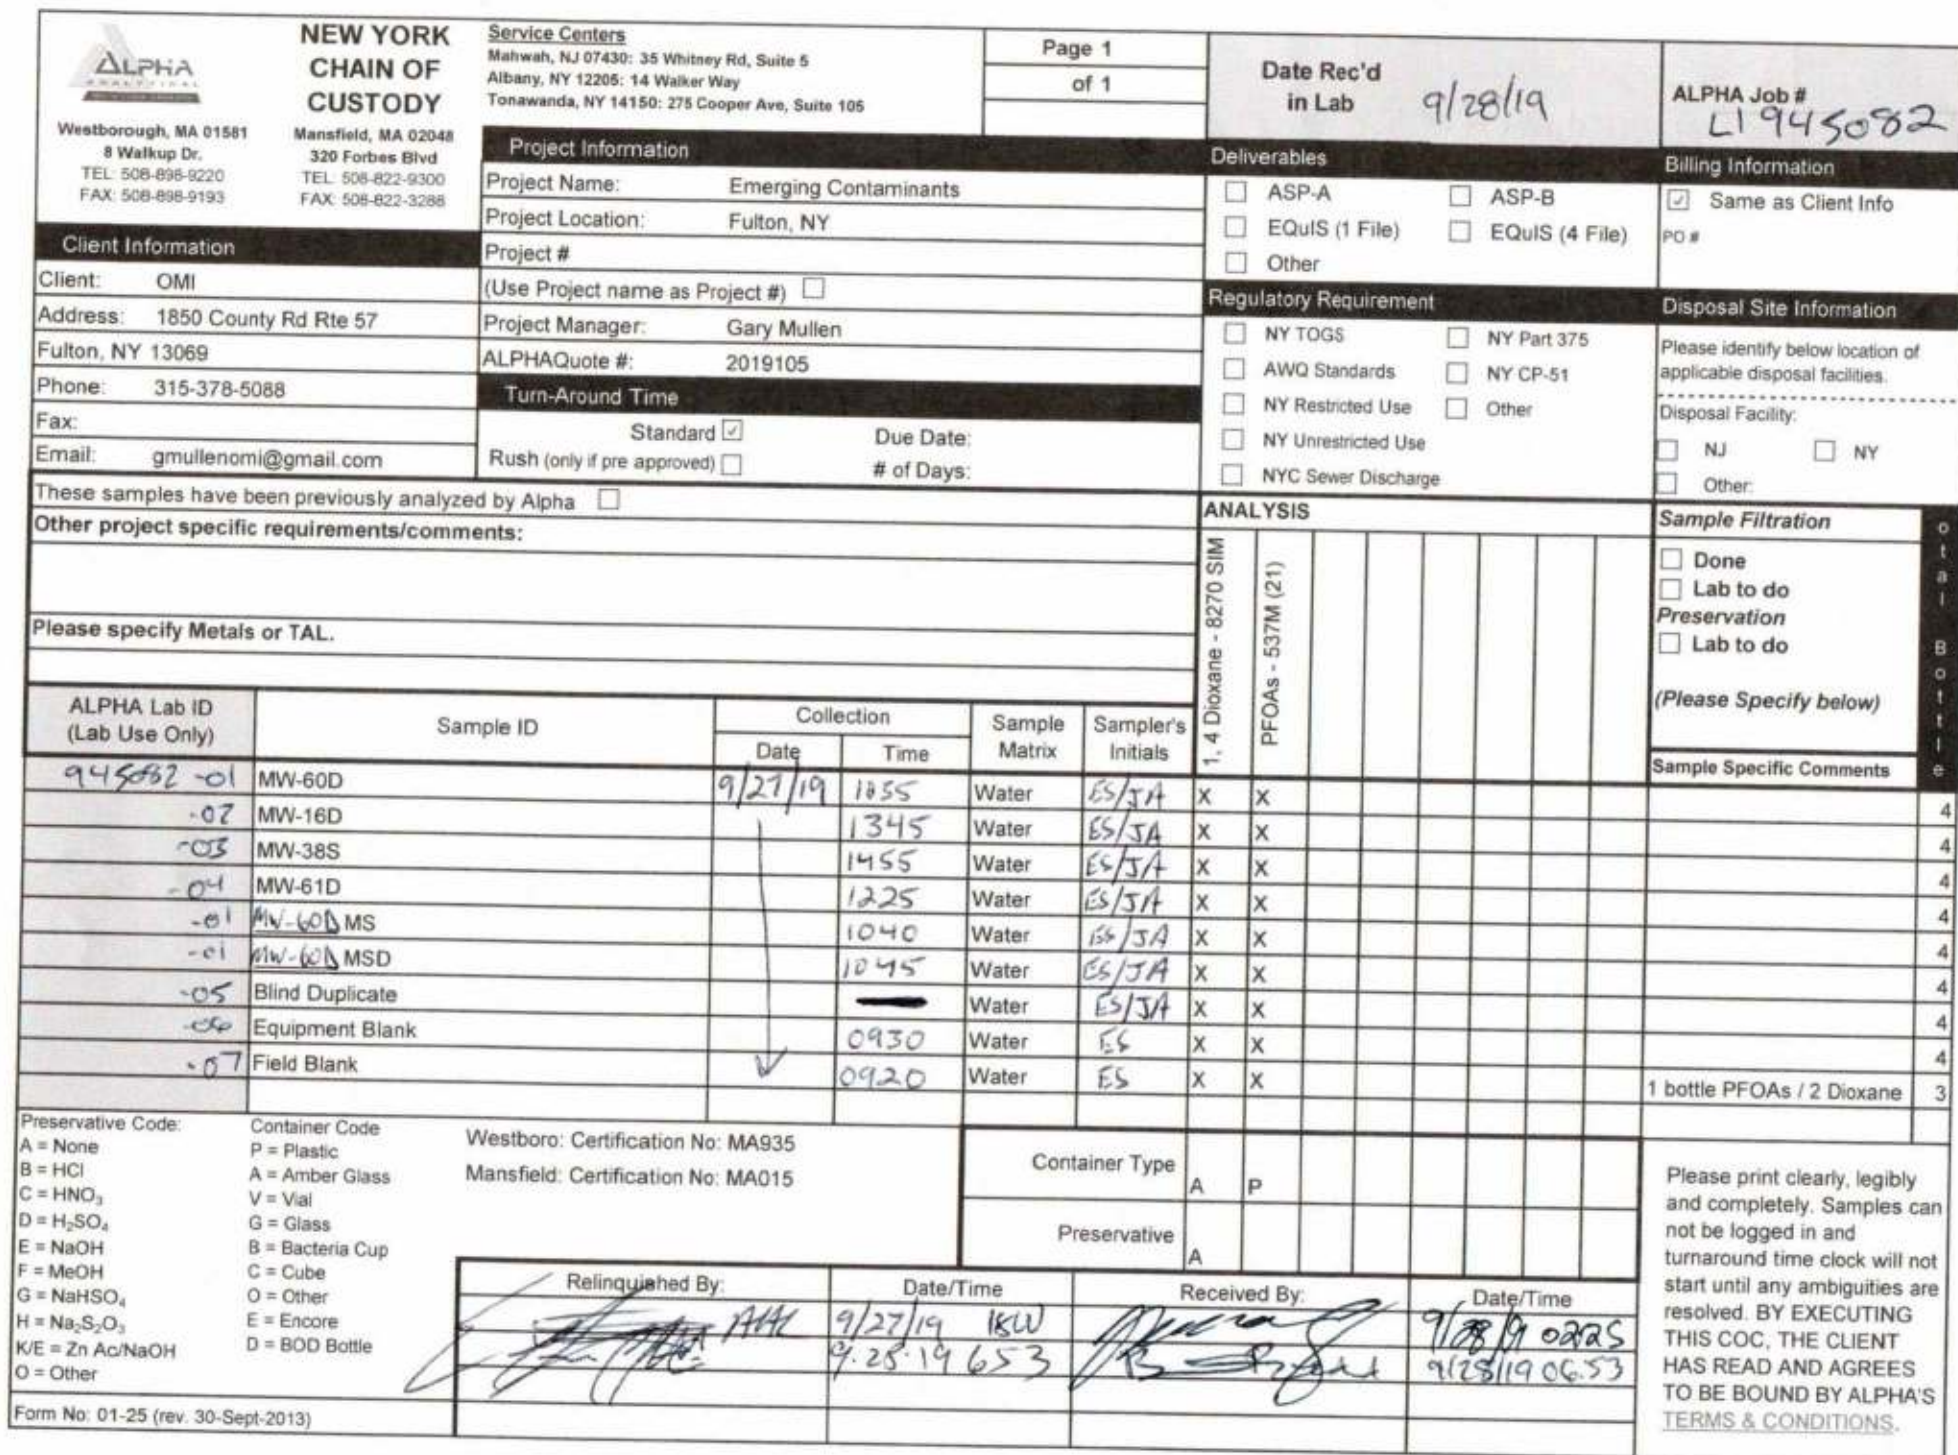 ALPHA
ANALYTICAL
Westborough, MA 01581
8 Walkup Dr.
TEL: 508-898-9220
FAX: 508-898-9193
NEW YORK
CHAIN OF
CUSTODY
Mansfield, MA 02048
320 Forbes Blvd
TEL: 508-822-9300
FAX: 508-822-3288
Service Centers
Mahwah, NJ 07430: 35 Whitney Rd, Suite 5
Albany, NY 12205: 14 Walker Way
Tonawanda, NY 14150: 275 Cooper Ave, Suite 105
Page 1
of 1
Date Rec'd
in Lab 9/28/19
ALPHA Job #
L1945082
Client Information
Client: OMI
Address: 1850 County Rd Rte 57
Fulton, NY 13069
Phone: 315-378-5088
Fax:
Email: gmullenomi@gmail.com
Project Information
Project Name: Emerging Contaminants
Project Location: Fulton, NY
Project #
(Use Project name as Project #)
Project Manager: Gary Mullen
ALPHAQuote #: 2019105
Turn-Around Time
Standard Due Date:
Rush (only if pre approved) # of Days:
Deliverables
ASP-A ASP-B
EQuIS (1 File) EQuIS (4 File)
Other
Regulatory Requirement
NY TOGS NY Part 375
AWQ Standards NY CP-51
NY Restricted Use Other
NY Unrestricted Use
NYC Sewer Discharge
Billing Information
Same as Client Info
PO #
Disposal Site Information
Please identify below location of
applicable disposal facilities.
Disposal Facility:
NJ NY
Other:
These samples have been previously analyzed by Alpha
Other project specific requirements/comments:
Please specify Metals or TAL.
ANALYSIS
1, 4 Dioxane - 8270 SIM
PFOAs - 537M (21)
Sample Filtration
Done
Lab to do
Preservation
Lab to do
(Please Specify below)
otal Bottle
ALPHA Lab ID
(Lab Use Only)
Sample ID
Collection
Date Time
Sample
Matrix
Sampler's
Initials
Sample Specific Comments
945082 -01 MW-60D 9/27/19 Water ES/JA X X 4
-02 MW-16D 1345 Water ES/JA X X 4
-03 MW-38S 1455 Water ES/JA X X 4
-04 MW-61D 1225 Water ES/JA X X 4
-01 MW-60D MS 1040 Water ES/JA X X 4
-01 MW-60D MSD 1045 Water ES/JA X X 4
-05 Blind Duplicate Water ES/JA X X 4
-06 Equipment Blank 0930 Water ES X X 4
-07 Field Blank 0920 Water ES X X 1 bottle PFOAs / 2 Dioxane 3
Preservative Code:
A = None
B = HCl
C = HNO₃
D = H₂SO₄
E = NaOH
F = MeOH
G = NaHSO₄
H = Na₂S₂O₃
K/E = Zn Ac/NaOH
O = Other
Container Code
P = Plastic
A = Amber Glass
V = Vial
G = Glass
B = Bacteria Cup
C = Cube
O = Other
E = Encore
D = BOD Bottle
Westboro: Certification No: MA935
Mansfield: Certification No: MA015
Container Type A P
Preservative A
Relinquished By: Date/Time Received By: Date/Time
AAL 9/27/19 9/28/19 0225
9.28.19 653 9/28/19 06:53
Please print clearly, legibly
and completely. Samples can
not be logged in and
turnaround time clock will not
start until any ambiguities are
resolved. BY EXECUTING
THIS COC, THE CLIENT
HAS READ AND AGREES
TO BE BOUND BY ALPHA'S
TERMS & CONDITIONS.
Form No: 01-25 (rev. 30-Sept-2013)